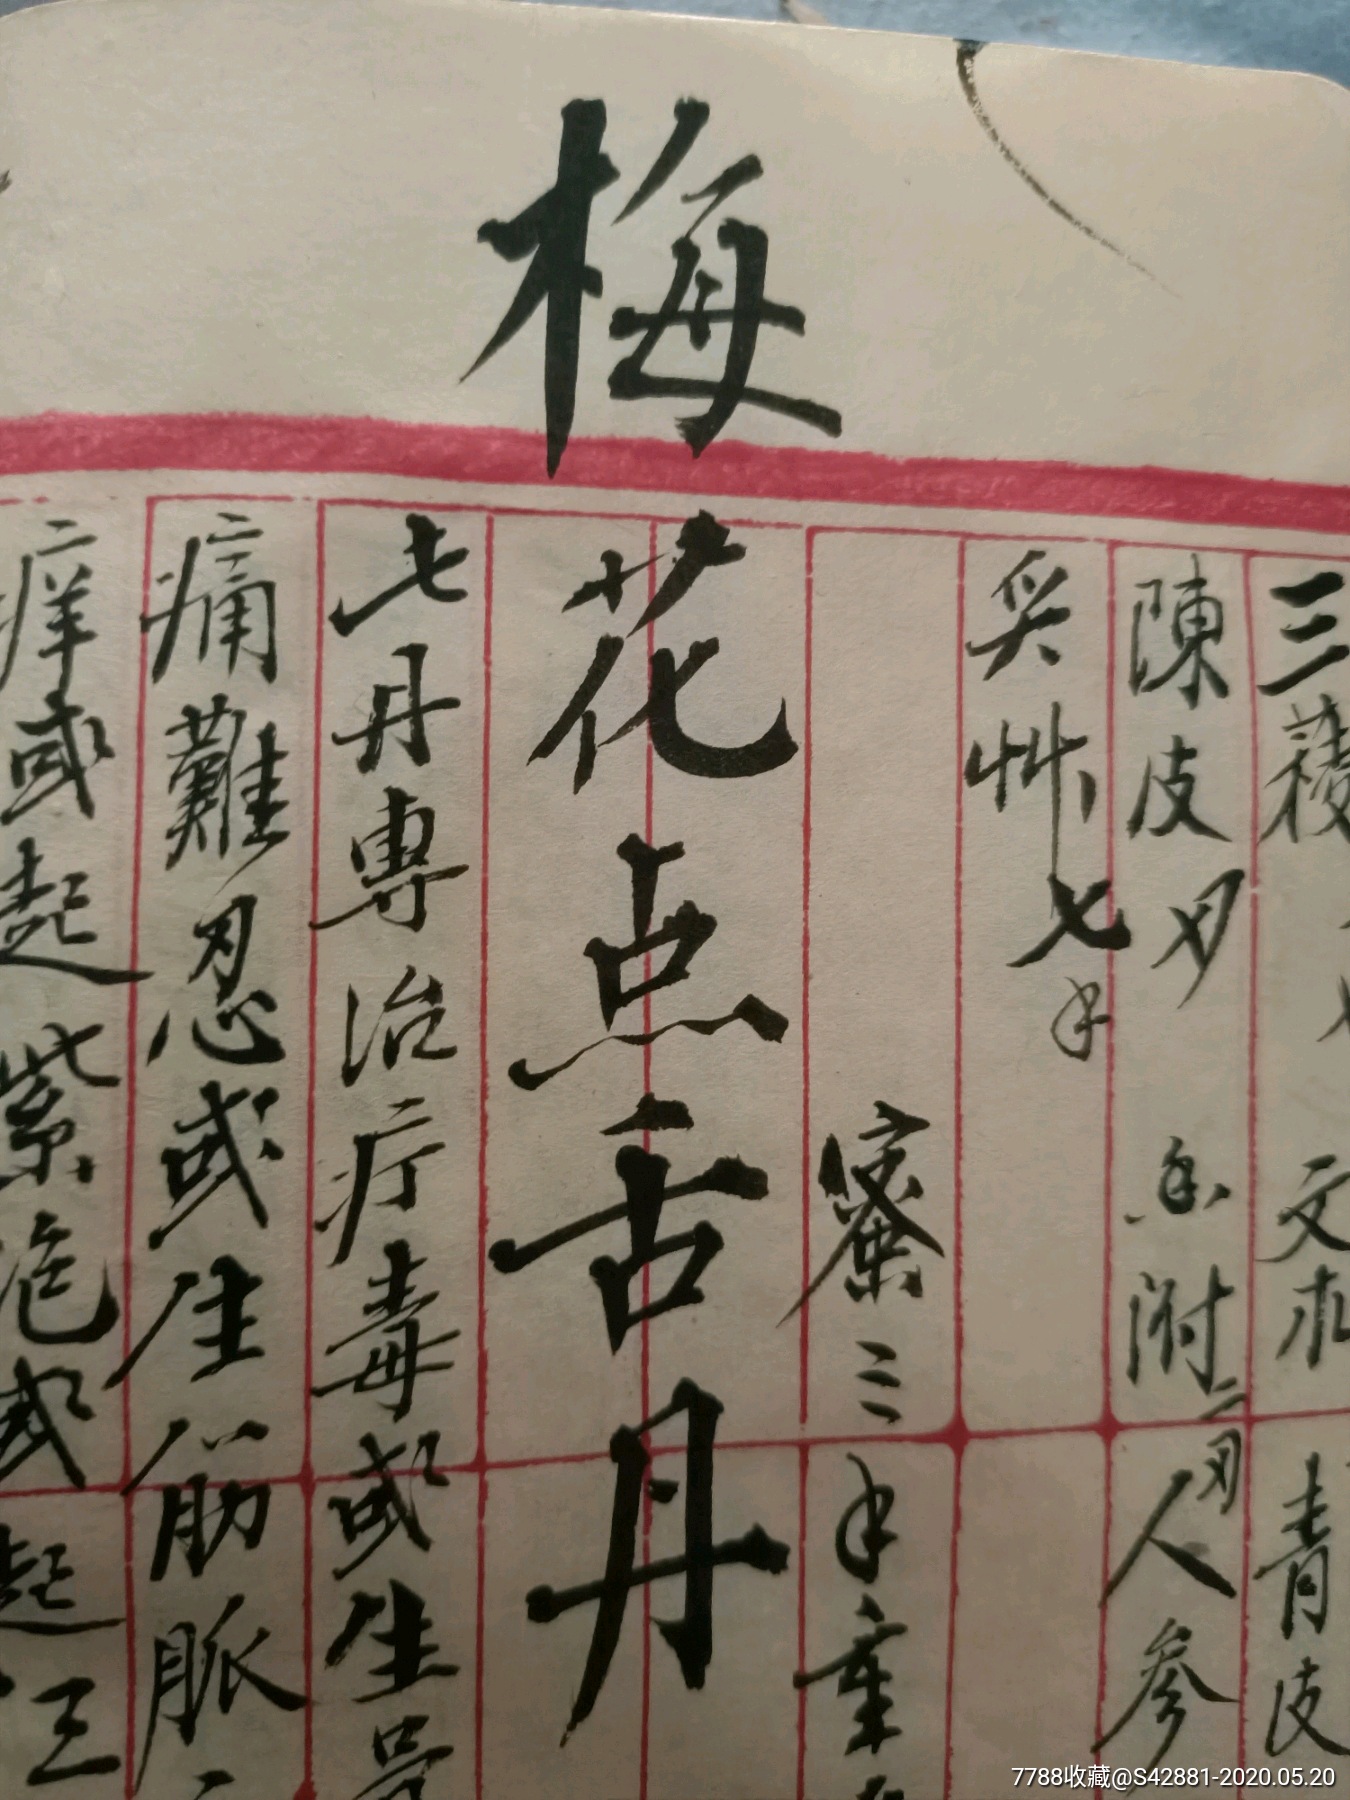 三稜 文朮 青皮
陳皮 刄 香附 二刄 人參
炙艸 七
蜜三
梅花点舌丹
七丹專治疔毒或生
痛難忍或生筋脈
痒或起紫泡或起三
7788收藏@S42881-2020.05.20